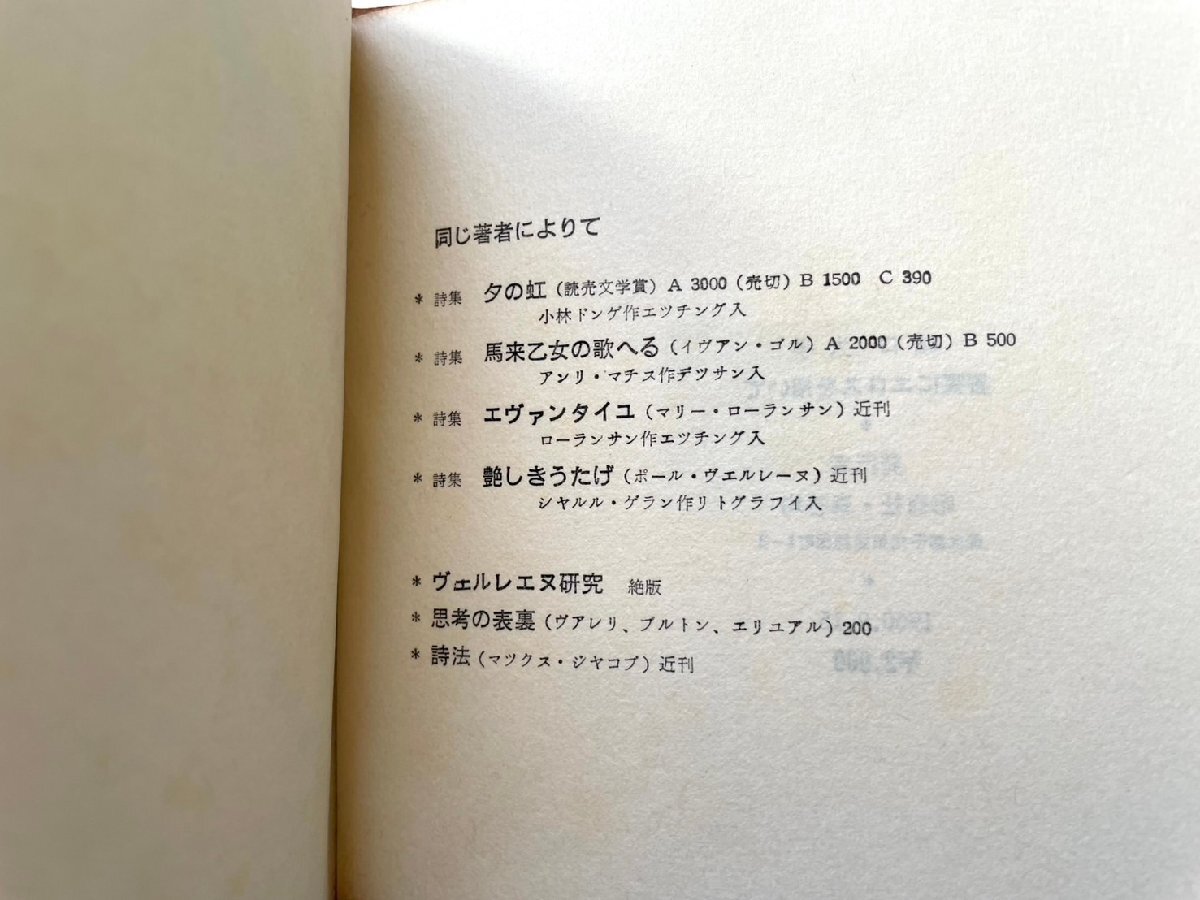 同じ著者によりて
* 詩集 夕の虹 (読売文学賞) A 3000 (売切) B 1500 C 390
小林ドンゲ作エツチング入
* 詩集 馬来乙女の歌へる (イヴアン・ゴル) A 2000 (売切) B 500
アンリ・マチス作デツサン入
* 詩集 エヴァンタイユ (マリー・ローランサン) 近刊
ローランサン作エツチング入
* 詩集 艶しきうたげ (ポール・ヴエルレーヌ) 近刊
シヤルル・ゲラン作リトグラフイ入
* ヴェルレエヌ研究 絶版
* 思考の表裏 (ヴアレリ、ブルトン、エリユアル) 200
* 詩法 (マツクス・ジヤコブ) 近刊
¥2,000